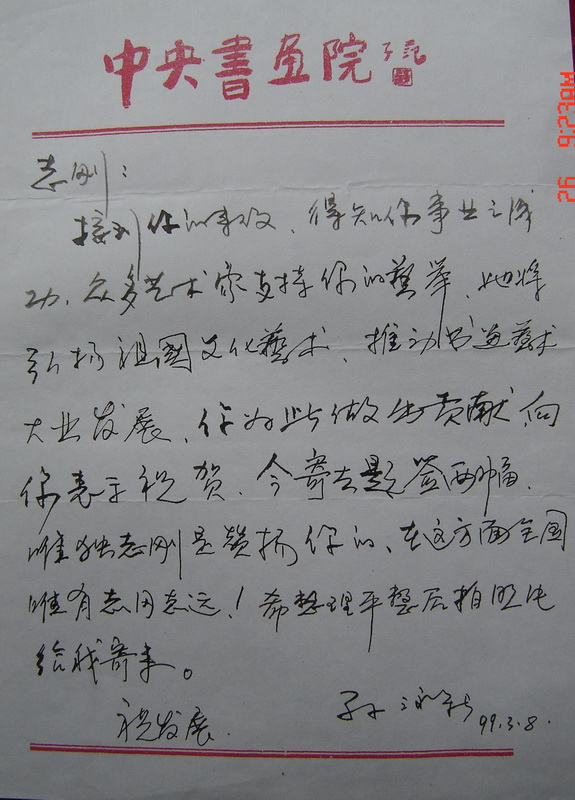 中央書画院 子龍
志刚：
接到你的来信、得知你事业之成
功、众多艺术家支持你的藝举、她将
弘扬祖國文化藝术、推动书画藝术
大业发展、你为此做出贡献、向
你表示祝贺、今寄去题签两幅、
唯独志刚是赞扬你的、在这方面全国
唯有志刚志远！希整理平整后拍照片
给我寄来。
祝发展.
孙
99.3.8.